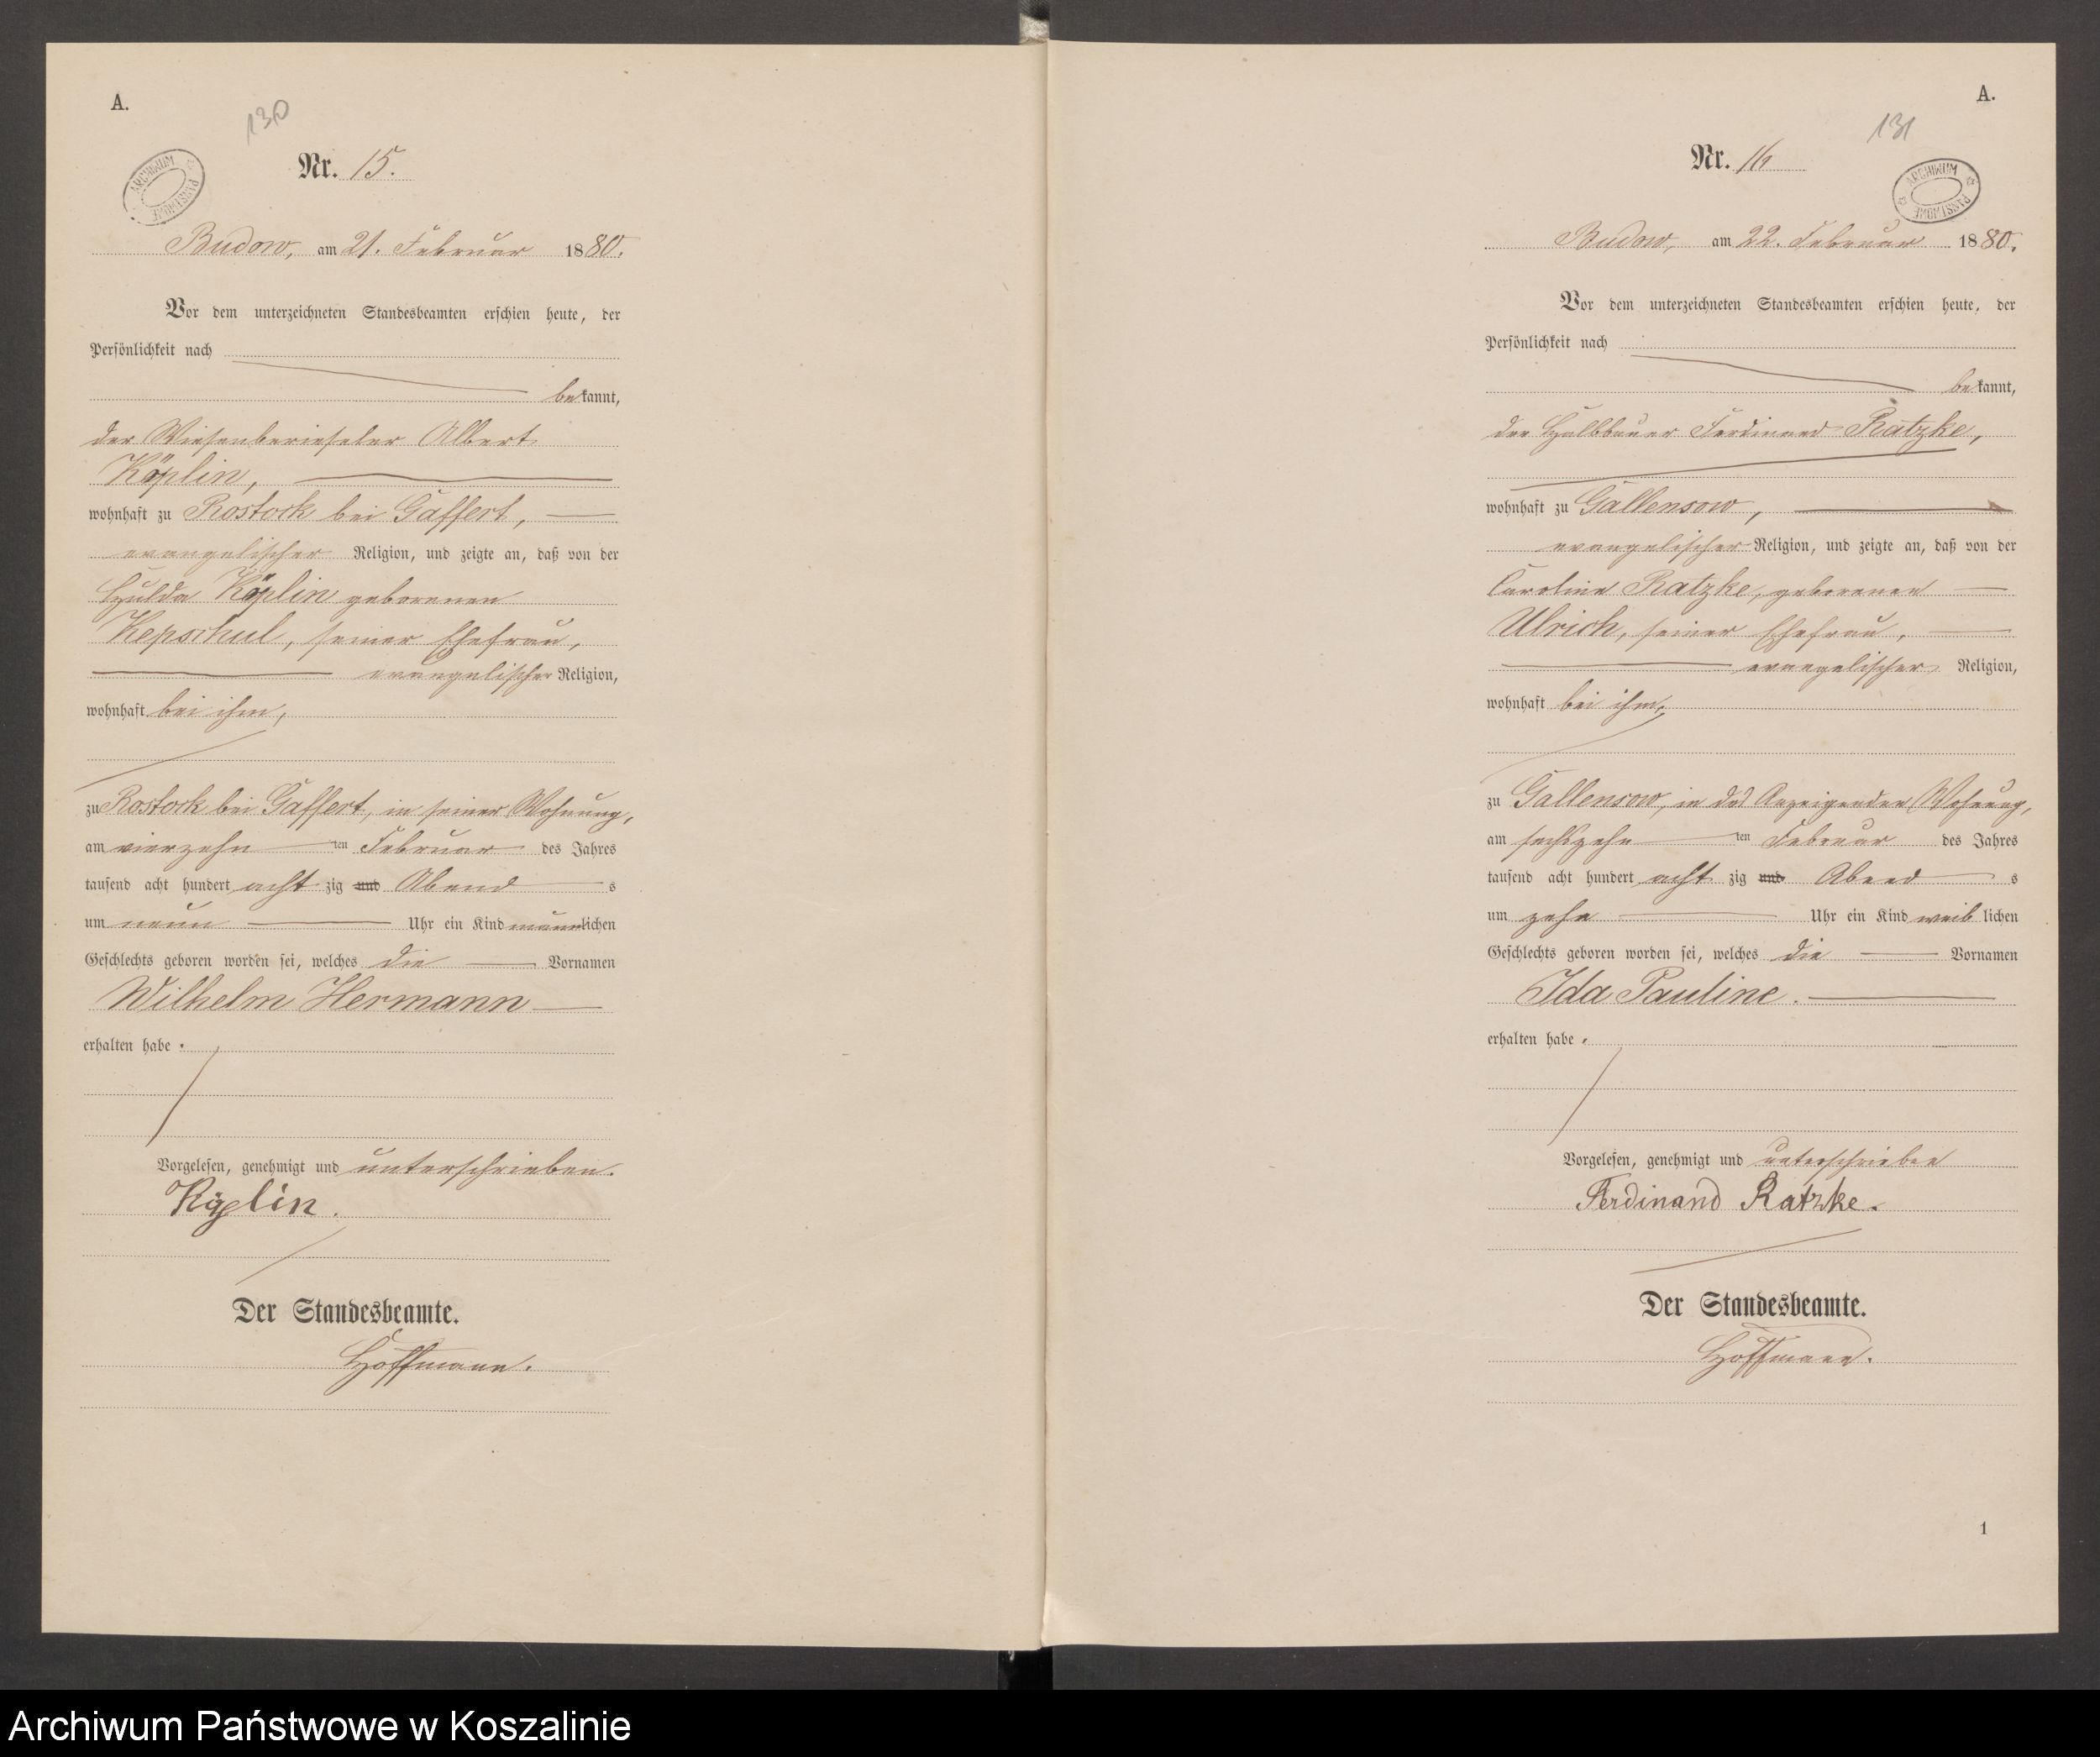 A.
130
ARCHIWUM PAŃSTWOWE
Nr. 15.
Budow, am 21. Februar 1880.
Vor dem unterzeichneten Standesbeamten erschien heute, der
Persönlichkeit nach
bekannt,
der Wiesenberieseler Albert
Köplin,
wohnhaft zu Rostock bei Gaffert,
evangelischer Religion, und zeigte an, daß von der
Hulda Köplin geborenen
Kepschul, seiner Ehefrau,
evangelischer Religion,
wohnhaft bei ihm,
zu Rostock bei Gaffert, in seiner Wohnung,
am vierzehn ten Februar des Jahres
tausend acht hundert acht zig und Abend s
um neun Uhr ein Kind männlichen
Geschlechts geboren worden sei, welches die Vornamen
Wilhelm Hermann
erhalten habe.
Vorgelesen, genehmigt und unterschrieben.
Köplin.
Der Standesbeamte.
Hoffmann.
A.
131
Nr. 16
ARCHIWUM PAŃSTWOWE
Budow, am 22. Februar 1880.
Vor dem unterzeichneten Standesbeamten erschien heute, der
Persönlichkeit nach
bekannt,
der Halbbauer Ferdinand Ratzke,
wohnhaft zu Gallensow,
evangelischer Religion, und zeigte an, daß von der
Caroline Ratzke, geborenen
Ulrich, seiner Ehefrau,
evangelischer Religion,
wohnhaft bei ihm,
zu Gallensow, in des Anzeigenden Wohnung,
am sechszehn ten Februar des Jahres
tausend acht hundert acht zig und Abend s
um zehn Uhr ein Kind weib lichen
Geschlechts geboren worden sei, welches die Vornamen
Ida Pauline.
erhalten habe.
Vorgelesen, genehmigt und unterschrieben
Ferdinand Ratzke.
Der Standesbeamte.
Hoffmann.
1
Archiwum Państwowe w Koszalinie